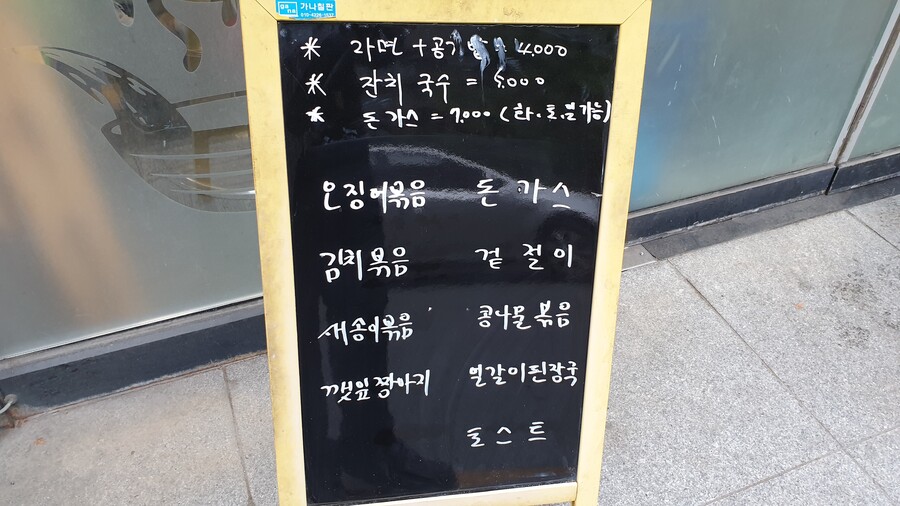 가나칠판
* 라면 + 공기밥 = 4.000
* 잔치 국수 = 5.000
* 돈가스 = 7.000 (화.토.일 가능)
오징어볶음 돈가스
김치볶음 겉절이
새송이볶음 콩나물볶음
깻잎짱아지 얼갈이된장국
토스트